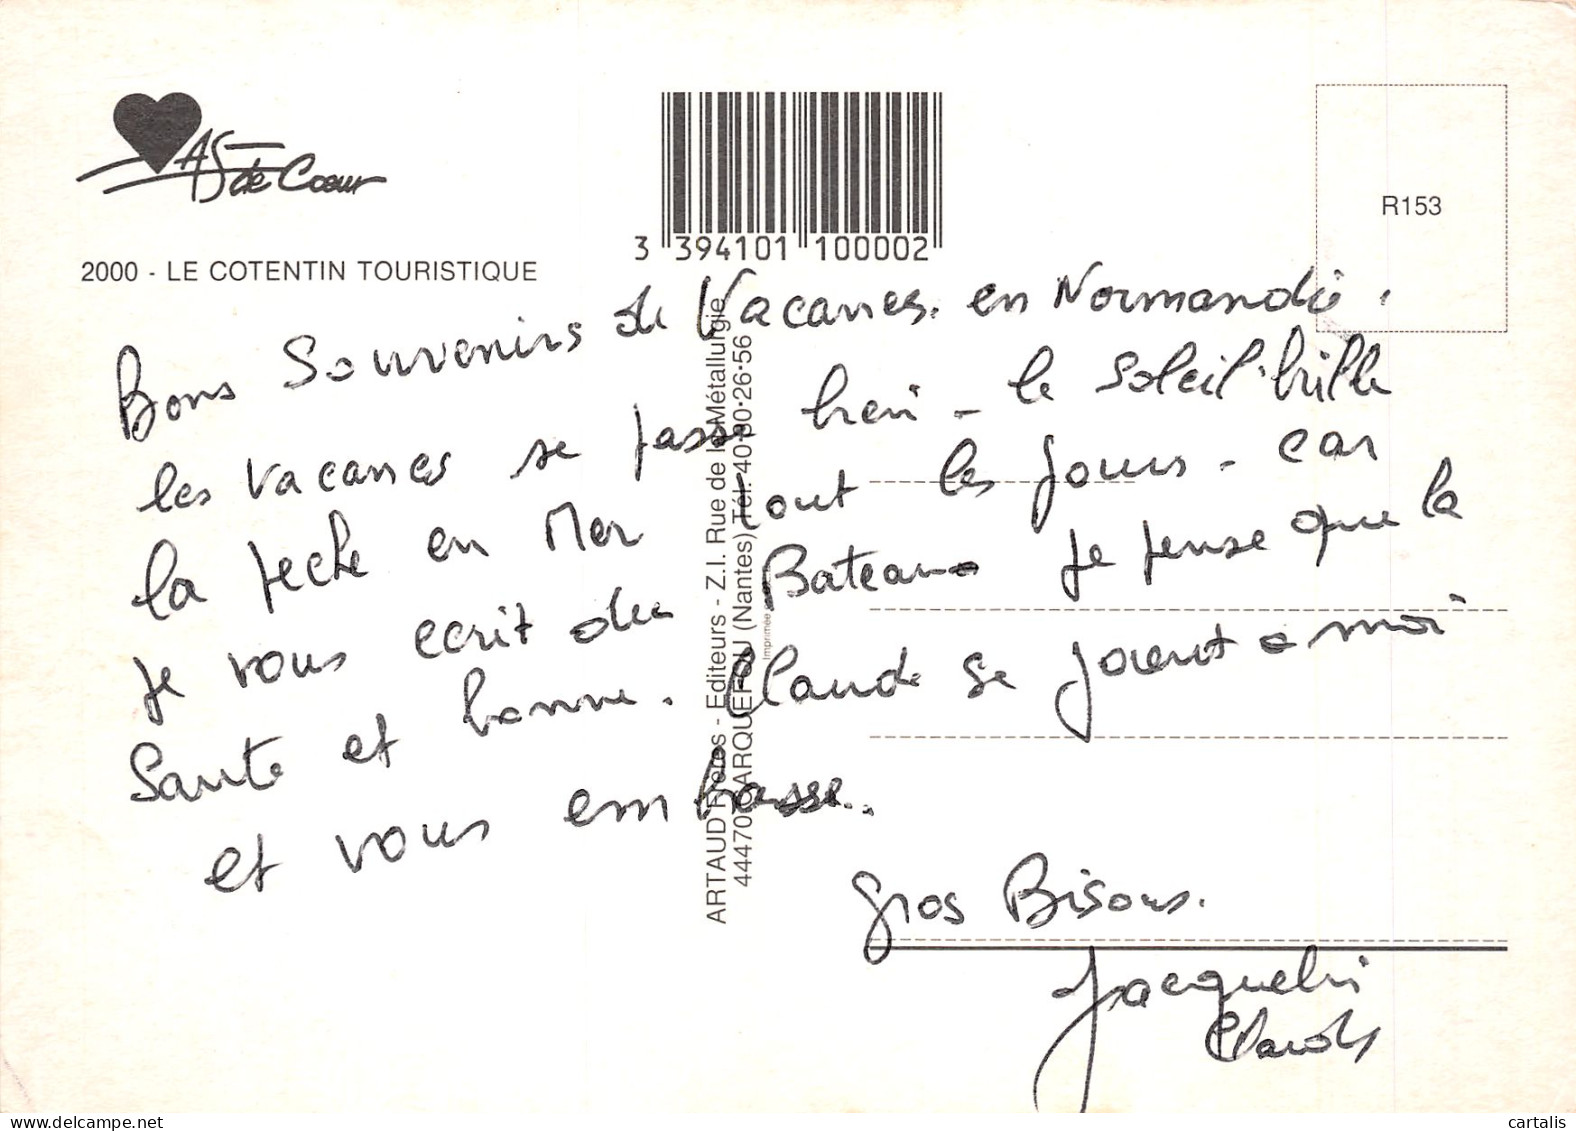 AS de Coeur
2000 - LE COTENTIN TOURISTIQUE
3 394101 100002
R153
Bons Souvenirs de Vacances. en Normandie.
les vacances se passe bien - le soleil brille
la peche en Mer tout les jours - car
je vous ecrit du Bateau je pense que la
Santé et bonne. Claude se joient a moi
et vous embrasse..
Gros Bisous.
Jacqueline
Claude
ARTAUD Frères - Editeurs - Z.I. Rue de la Métallurgie
44470 CARQUEFOU (Nantes) Tél. 40·30·26·56
Imprimée
cartalis